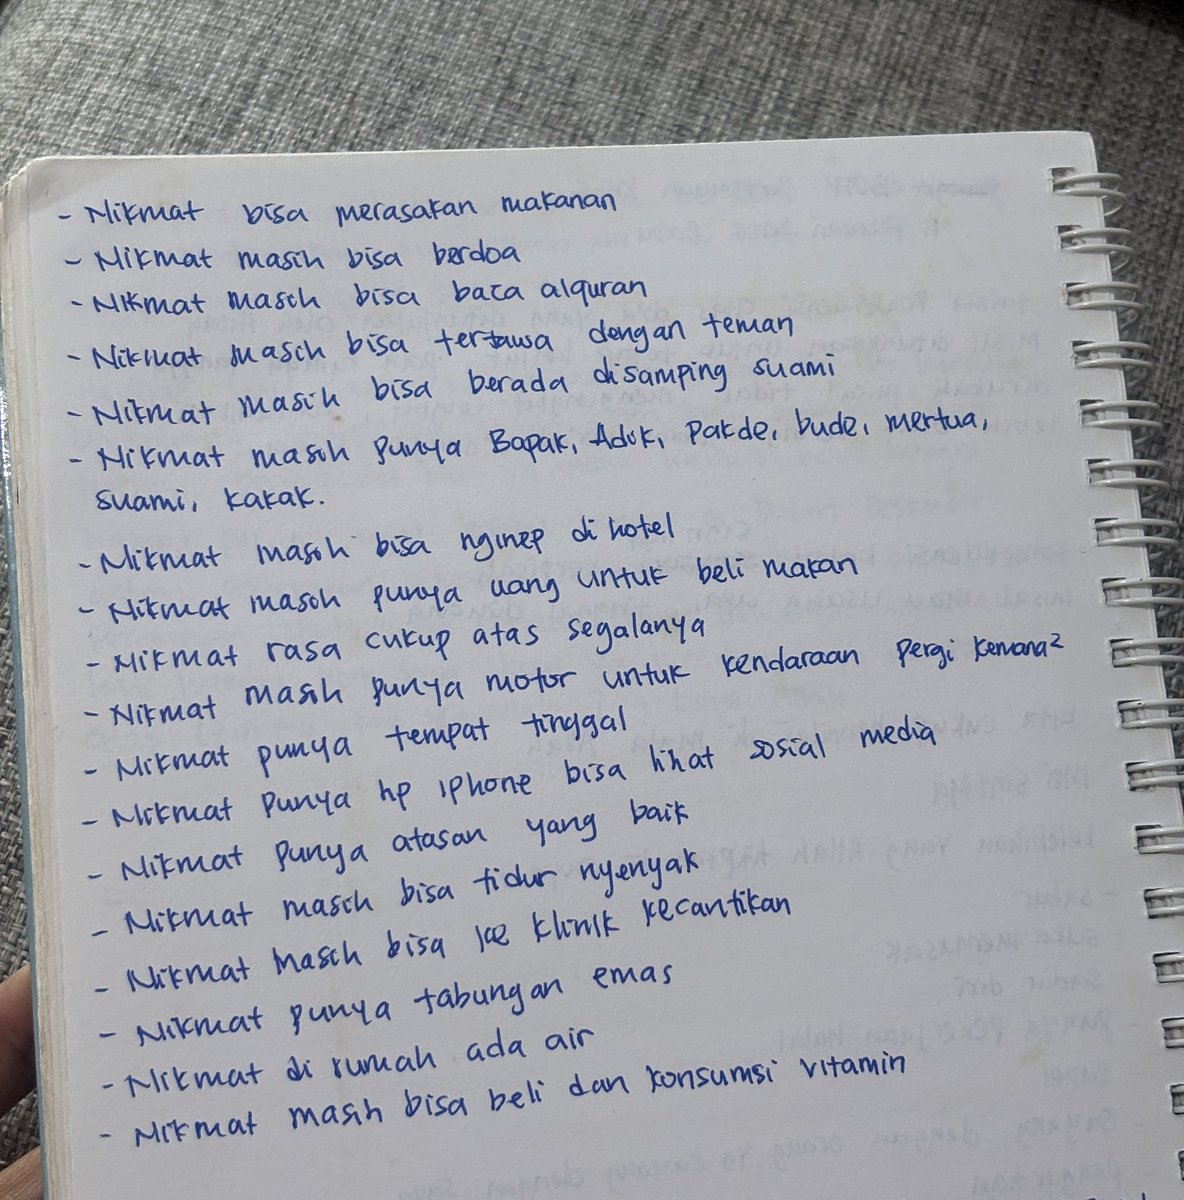 - Nikmat bisa merasakan makanan
- Nikmat masih bisa berdoa
- Nikmat masih bisa baca alquran
- Nikmat masih bisa tertawa dengan teman
- Nikmat masih bisa berada disamping suami
- Nikmat masih punya Bapak, Adek, pakde, bude, mertua,
suami, kakak.
- Nikmat masih bisa nginep di hotel
- Nikmat masih punya uang untuk beli makan
- Nikmat rasa cukup atas segalanya
- Nikmat masih punya motor untuk kendaraan pergi kemana²
- Nikmat punya tempat tinggal
- Nikmat punya hp iphone bisa lihat sosial media
- Nikmat punya atasan yang baik
- Nikmat masih bisa tidur nyenyak
- Nikmat masih bisa ke klinik kecantikan
- Nikmat punya tabungan emas
- Nikmat di rumah ada air
- Nikmat masih bisa beli dan konsumsi vitamin